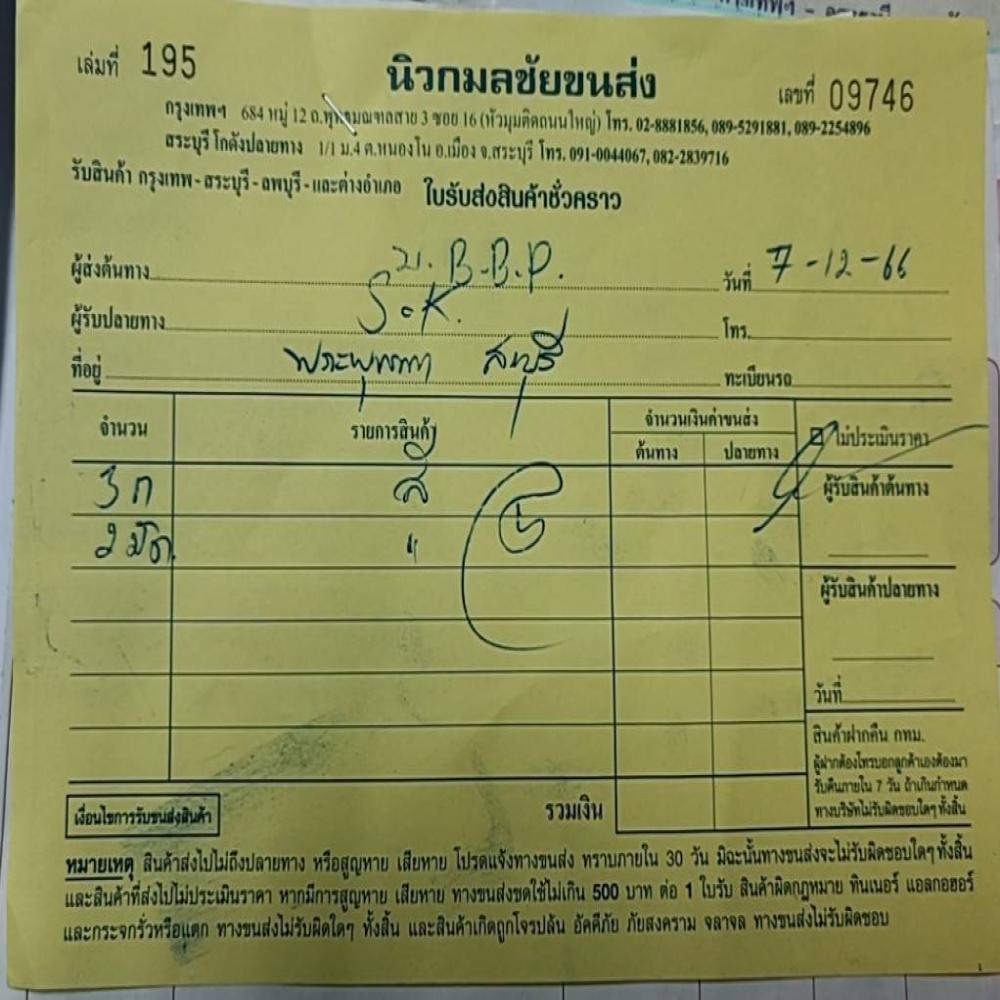 เล่มที่ 195
นิวกมลชัยขนส่ง
เลขที่ 09746
กรุงเทพฯ 684 หมู่ 12 ถ.พุทธมณฑลสาย 3 ซอย 16 (หัวมุมติดถนนใหญ่) โทร. 02-8881856, 089-5291881, 089-2254896
สระบุรี โกดังปลายทาง 1/1 ม.4 ต.หนองโน อ.เมือง จ.สระบุรี โทร. 091-0044067, 082-2839716
รับสินค้า กรุงเทพ-สระบุรี-ลพบุรี-และต่างอำเภอ ใบรับส่งสินค้าชั่วคราว
ผู้ส่งต้นทาง บ. B.B.P. วันที่ 7-12-66
ผู้รับปลายทาง S.K. โทร.
ที่อยู่ ทะเบียนรถ
จำนวน รายการสินค้า จำนวนเงินค่าขนส่ง ไม่ประเมินราคา
ต้นทาง ปลายทาง
3 ก สี ผู้รับสินค้าต้นทาง
2 มัด "
ผู้รับสินค้าปลายทาง
วันที่
สินค้าฝากคืน กทม.
ผู้ฝากต้องโทรบอกลูกค้าเองต้องมา
รับคืนภายใน 7 วัน ถ้าเกินกำหนด
ทางบริษัทไม่รับผิดชอบใดๆ ทั้งสิ้น
เงื่อนไขการรับขนส่งสินค้า รวมเงิน
หมายเหตุ สินค้าส่งไปไม่ถึงปลายทาง หรือสูญหาย เสียหาย โปรดแจ้งทางขนส่ง ทราบภายใน 30 วัน มิฉะนั้นทางขนส่งจะไม่รับผิดชอบใดๆ ทั้งสิ้น
และสินค้าที่ส่งไปไม่ประเมินราคา หากมีการสูญหาย เสียหาย ทางขนส่งชดใช้ไม่เกิน 500 บาท ต่อ 1 ใบรับ สินค้าผิดกฎหมาย ทินเนอร์ แอลกอฮอร์
และกระจกรั่วหรือแตก ทางขนส่งไม่รับผิดใดๆ ทั้งสิ้น และสินค้าเกิดถูกโจรปล้น อัคคีภัย ภัยสงคราม จลาจล ทางขนส่งไม่รับผิดชอบ